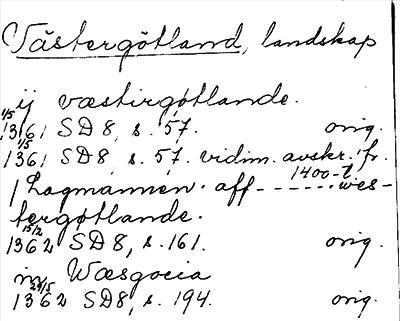 Västergötland, landskap
ij væstirgøtlande.
1/5
1361 SD 8, s. 57. orig.
1/5
1361 SD 8, s. 57. vidim. avskr. fr.
1400-t.
Lagmannen. aff - - - - - - wes-
tergøtlande.
15/2
1362 SD 8, s. 161. orig.
in Wæsgocia
29/5
1362 SD8, s. 194. orig.